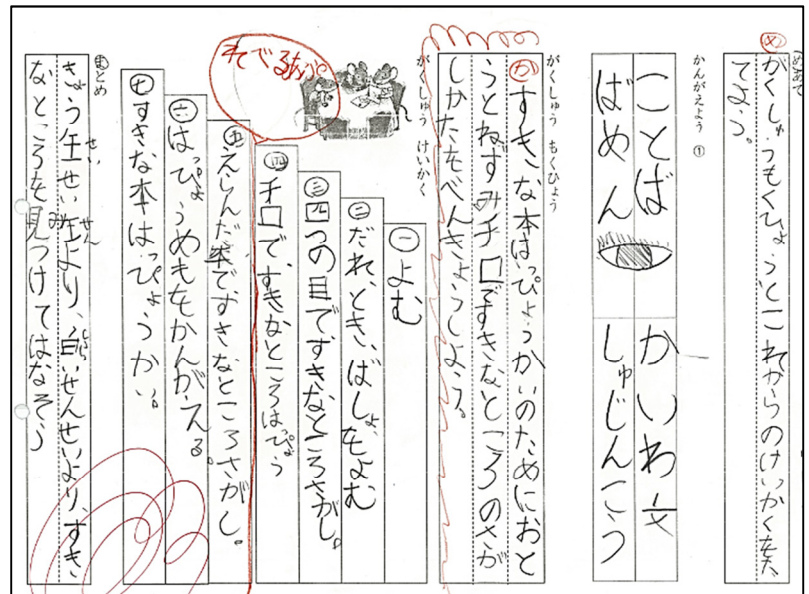 めあて
㋱がくしゅうもくひょうとこれからのけいかくをた
てよう。
かんがえよう ①
ことば
ばめん
かいわ文
しゅじんこう
がくしゅう もくひょう
㋕すきな本はっぴょうかいのためにおと
うとねずみチロですきなところのさが
しかたをべんきょうしよう。
がくしゅう けいかく
㊀よむ
㊁だれ、とき、ばしょ、をよむ
㊂四つの目ですきなところさがし。
㊃チロで、すきなところはっぴょう
㊄えらんだ本ですきなところさがし。
㊅はっぴょうめもをかんがえる。
㊆すきな本はっぴょうかい。
まとめ
きょう せんせいより、すき
なところを見つけてはなそう